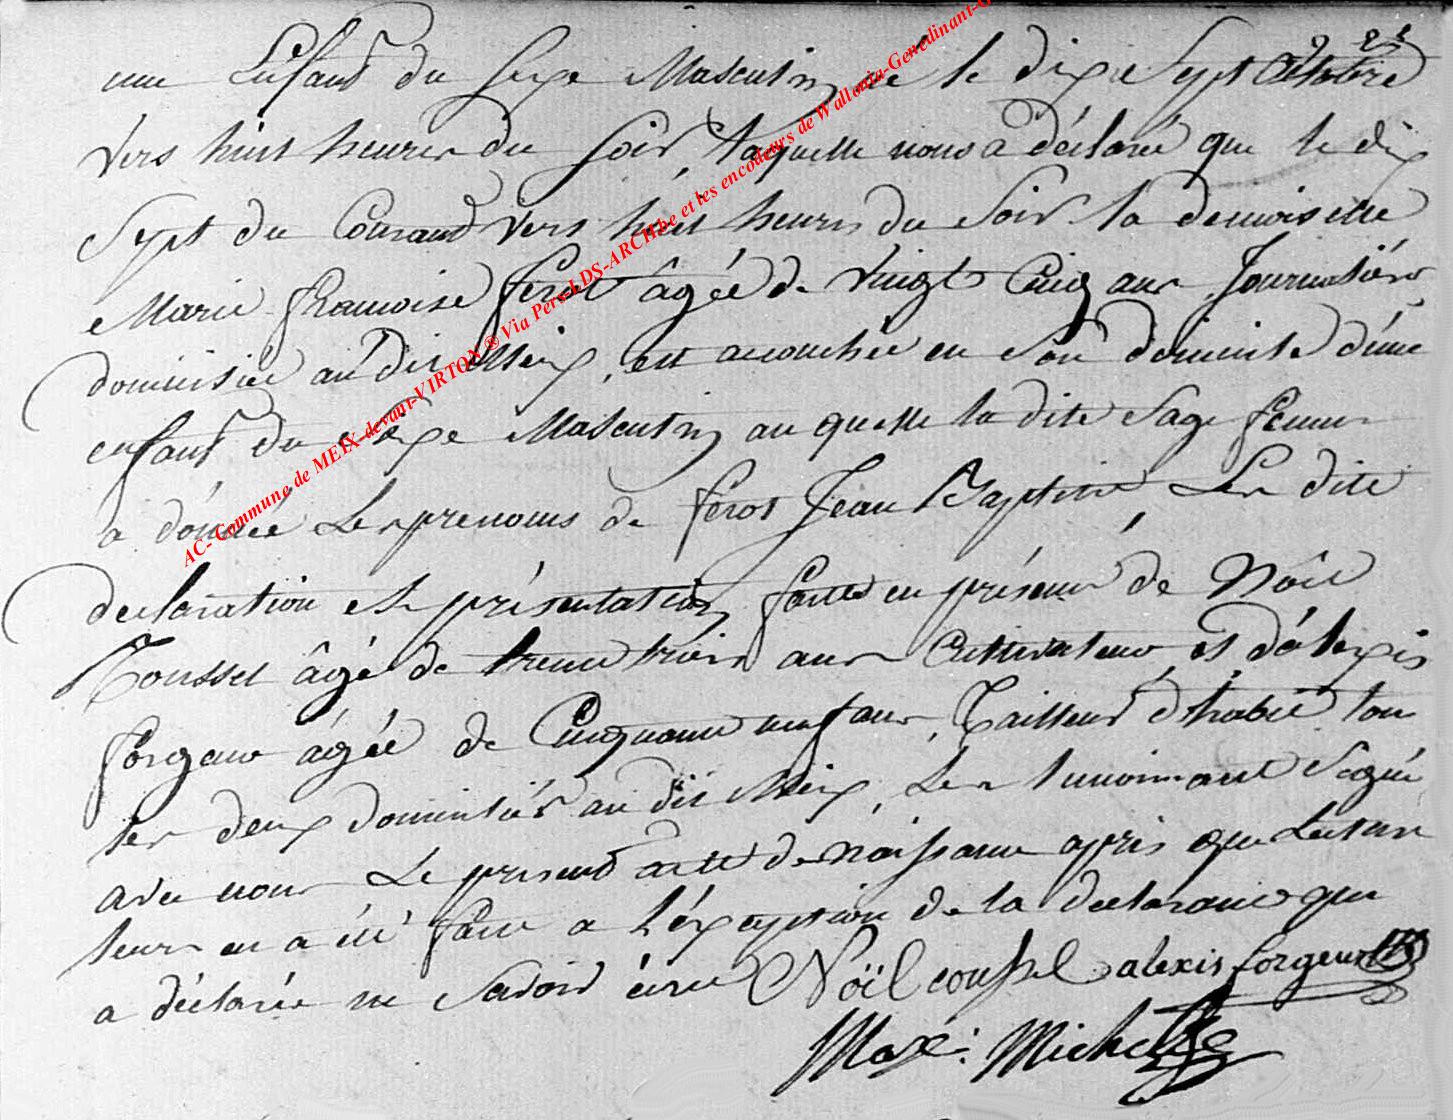 une Enfant du sexe Masculin né le dixe sept Octobre
vers huit heures du soir laquelle nous a déclaré que le dix
sept du Courand vers huit heures du Soir la demoiselle
Marie françoise ferot âgée de vingt Cinq ans Journalière
domiciliée audit Meix, est accouchée en Son domicile d'une
enfant du sexe Masculin au quelle la dite Sage femme
a donnée Les prenoms de ferot Jean Baptiste Les dite
declaration et présentation faitte en présence de Noêl
âgé de trente trois ans Cultivateur et d'alexis
forgeur âgée de Cinquante neuf ans, Tailleur d'habit tou
les deux domiciliés au dit Meix, Les temoins ont Signé
avec nous Le present acte de Naissance après que Lecture
leurs en a été faite a l'éxception de la declarante qui
a déclarée ne Savoir écrire Noël alexis forgeur
Max: Michel
AC- Commune de MEIX-devant-VIRTON ® Via Pers-LDS-ARCH.be et les encodeurs de Wallonia-Genedinant-G